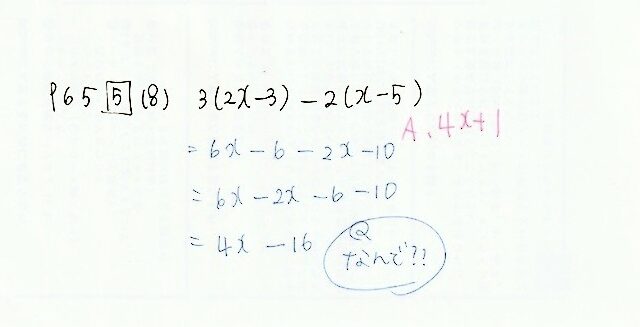 P65 5 (8) 3(2x-3) - 2(x-5)
A. 4x+1
= 6x - 6 - 2x - 10
= 6x - 2x - 6 - 10
= 4x - 16
Q
なんで??